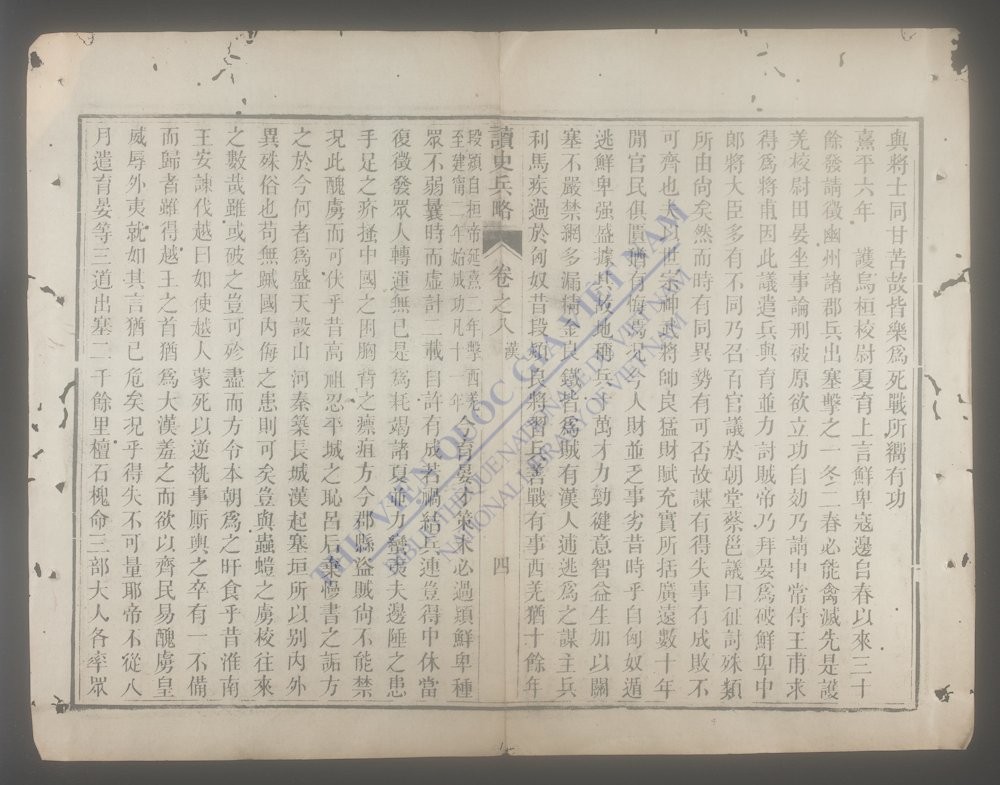 與將士同甘苦故皆樂爲死戰所嚮有功
熹平六年　護烏桓校尉夏育上言鮮卑寇邊自春以來三十
餘發請徵幽州諸郡兵出塞擊之一冬二春必能禽滅先是護
羌校尉田晏坐事論刑被原欲立功自効乃請中常侍王甫求
得爲將甫因此議遣兵與育並力討賊帝乃拜晏爲破鮮卑中
郎將大臣多有不同乃召百官議於朝堂蔡邕議曰征討殊類
所由尙矣然而時有同異勢有可否故謀有得失事有成敗不
可齊也夫以世宗神武將帥良猛財賦充實所括廣遠數十年
閒官民俱匱猶有悔焉况今人財並乏事劣昔時乎自匈奴遁
逃鮮卑强盛據其故地稱兵十萬才力勁健意智益生加以關
塞不嚴禁網多漏精金良鐵皆爲賊有漢人逋逃爲之謀主兵
利馬疾過於匈奴昔段熲良將習兵善戰有事西羌猶十餘年
讀史兵略 卷之八 漢 四
段熲自桓帝延熹二年擊西羌
至建甯二年始威功凡十一年
今育晏才策未必過熲鮮卑種
眾不弱曩時而虛計二載自許有成若禍結兵連豈得中休當
復徵發眾人轉運無已是爲耗竭諸夏並力蠻夷夫邊陲之患
手足之疥搔中國之困胸背之瘭疽方今郡縣盜賊尙不能禁
况此醜虜而可伏乎昔高祖忍平城之恥呂后棄慢書之詬方
之於今何者爲盛天設山河秦築長城漢起塞垣所以别內外
異殊俗也苟無䠞國內侮之患則可矣豈與蟲螘之虜校往來
之數哉雖或破之豈可殄盡而方令本朝爲之旰食乎昔淮南
王安諫伐越曰如使越人蒙死以逆執事厮輿之卒有一不備
而歸者雖得越王之首猶爲大漢羞之而欲以齊民易醜虜皇
威辱外夷就如其言猶已危矣况乎得失不可量耶帝不從八
月遣育晏等三道出塞二千餘里檀石槐命三部大人各率眾
THƯ VIỆN QUỐC GIA VIỆT NAM
BIBLIOTHÈQUE NATIONALE DU VIETNAM
NATIONAL LIBRARY OF VIETNAM